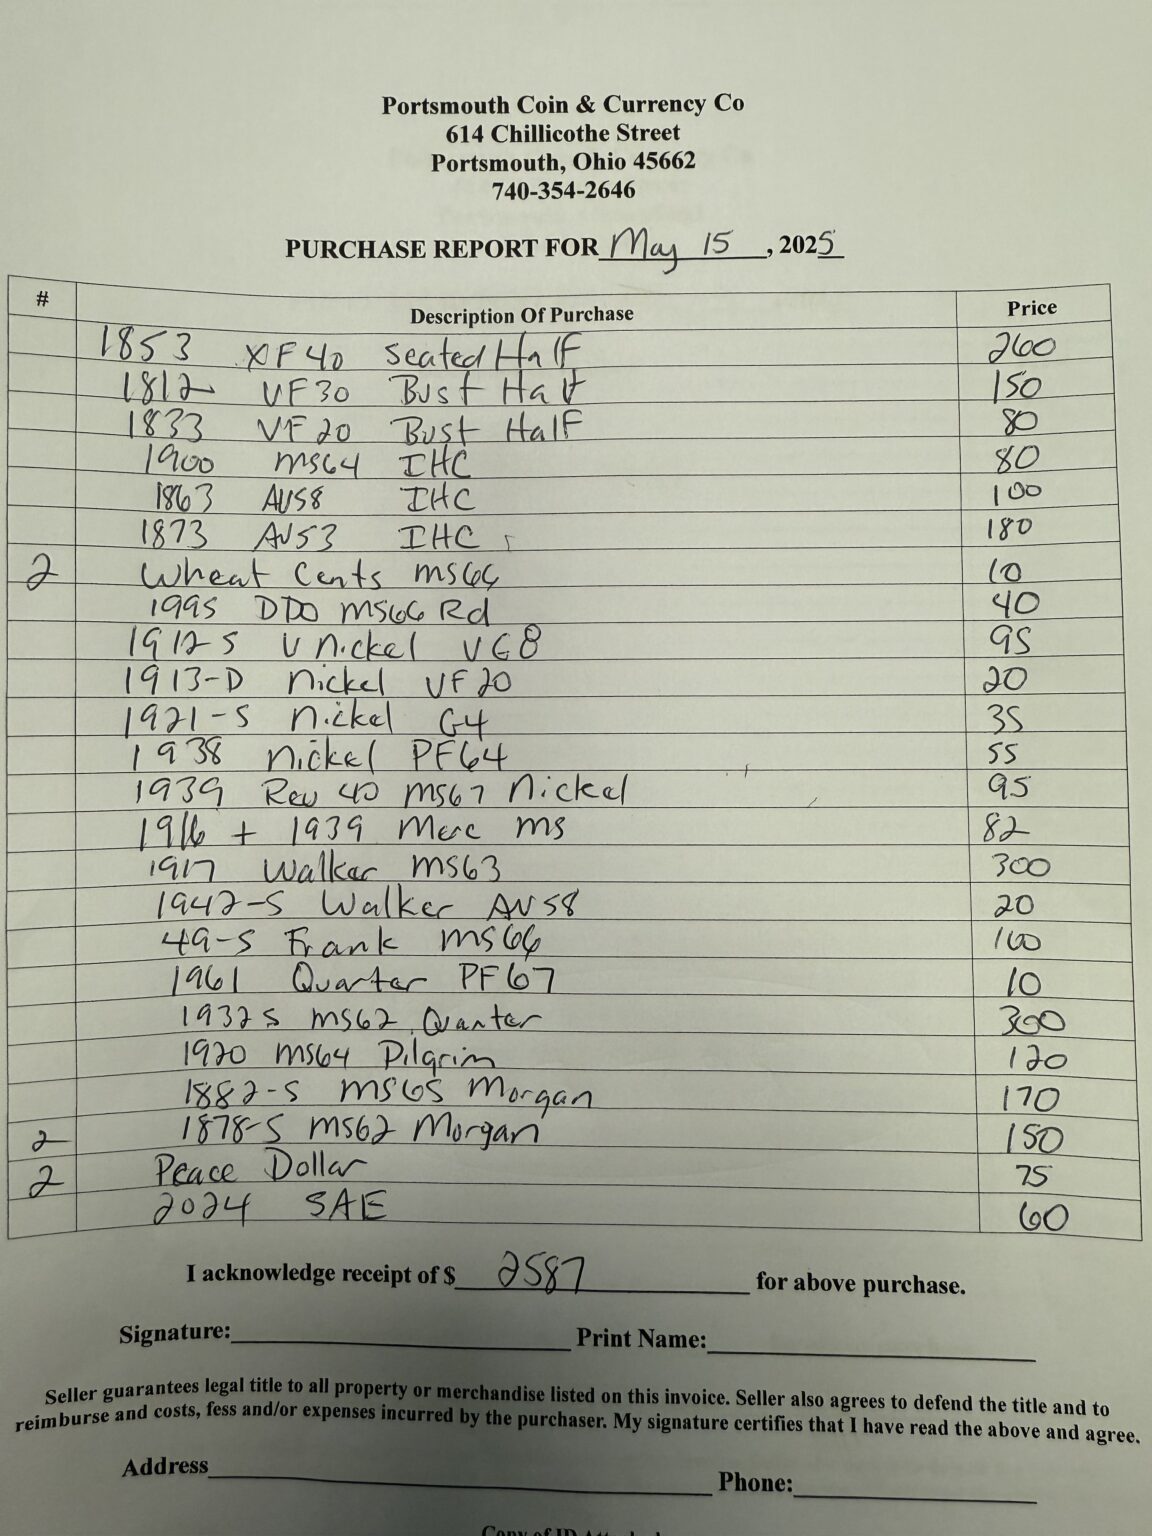 Portsmouth Coin & Currency Co
614 Chillicothe Street
Portsmouth, Ohio 45662
740-354-2646
PURCHASE REPORT FOR May 15, 2025
# Description Of Purchase Price
1853 XF40 Seated Half 260
1812 VF30 Bust Half 150
1833 VF20 Bust Half 80
1900 MS64 IHC 80
1863 AU58 IHC 100
1873 AU53 IHC 180
2 Wheat Cents MS66 10
1995 DDO MS66 Rd 40
1912-S V Nickel VG8 95
1913-D Nickel VF20 20
1921-S Nickel G4 35
1938 Nickel PF64 55
1939 Rev 40 MS67 Nickel 95
1916 + 1939 Merc MS 82
1917 Walker MS63 300
1942-S Walker AU58 20
49-S Frank MS66 100
1961 Quarter PF67 10
1932S MS62 Quarter 300
1920 MS64 Pilgrim 120
1882-S MS65 Morgan 170
2 1878-S MS62 Morgan 150
2 Peace Dollar 75
2024 SAE 60
I acknowledge receipt of $ 2587 for above purchase.
Signature: Print Name:
Seller guarantees legal title to all property or merchandise listed on this invoice. Seller also agrees to defend the title and to
reimburse and costs, fess and/or expenses incurred by the purchaser. My signature certifies that I have read the above and agree.
Address Phone:
Copy of ID